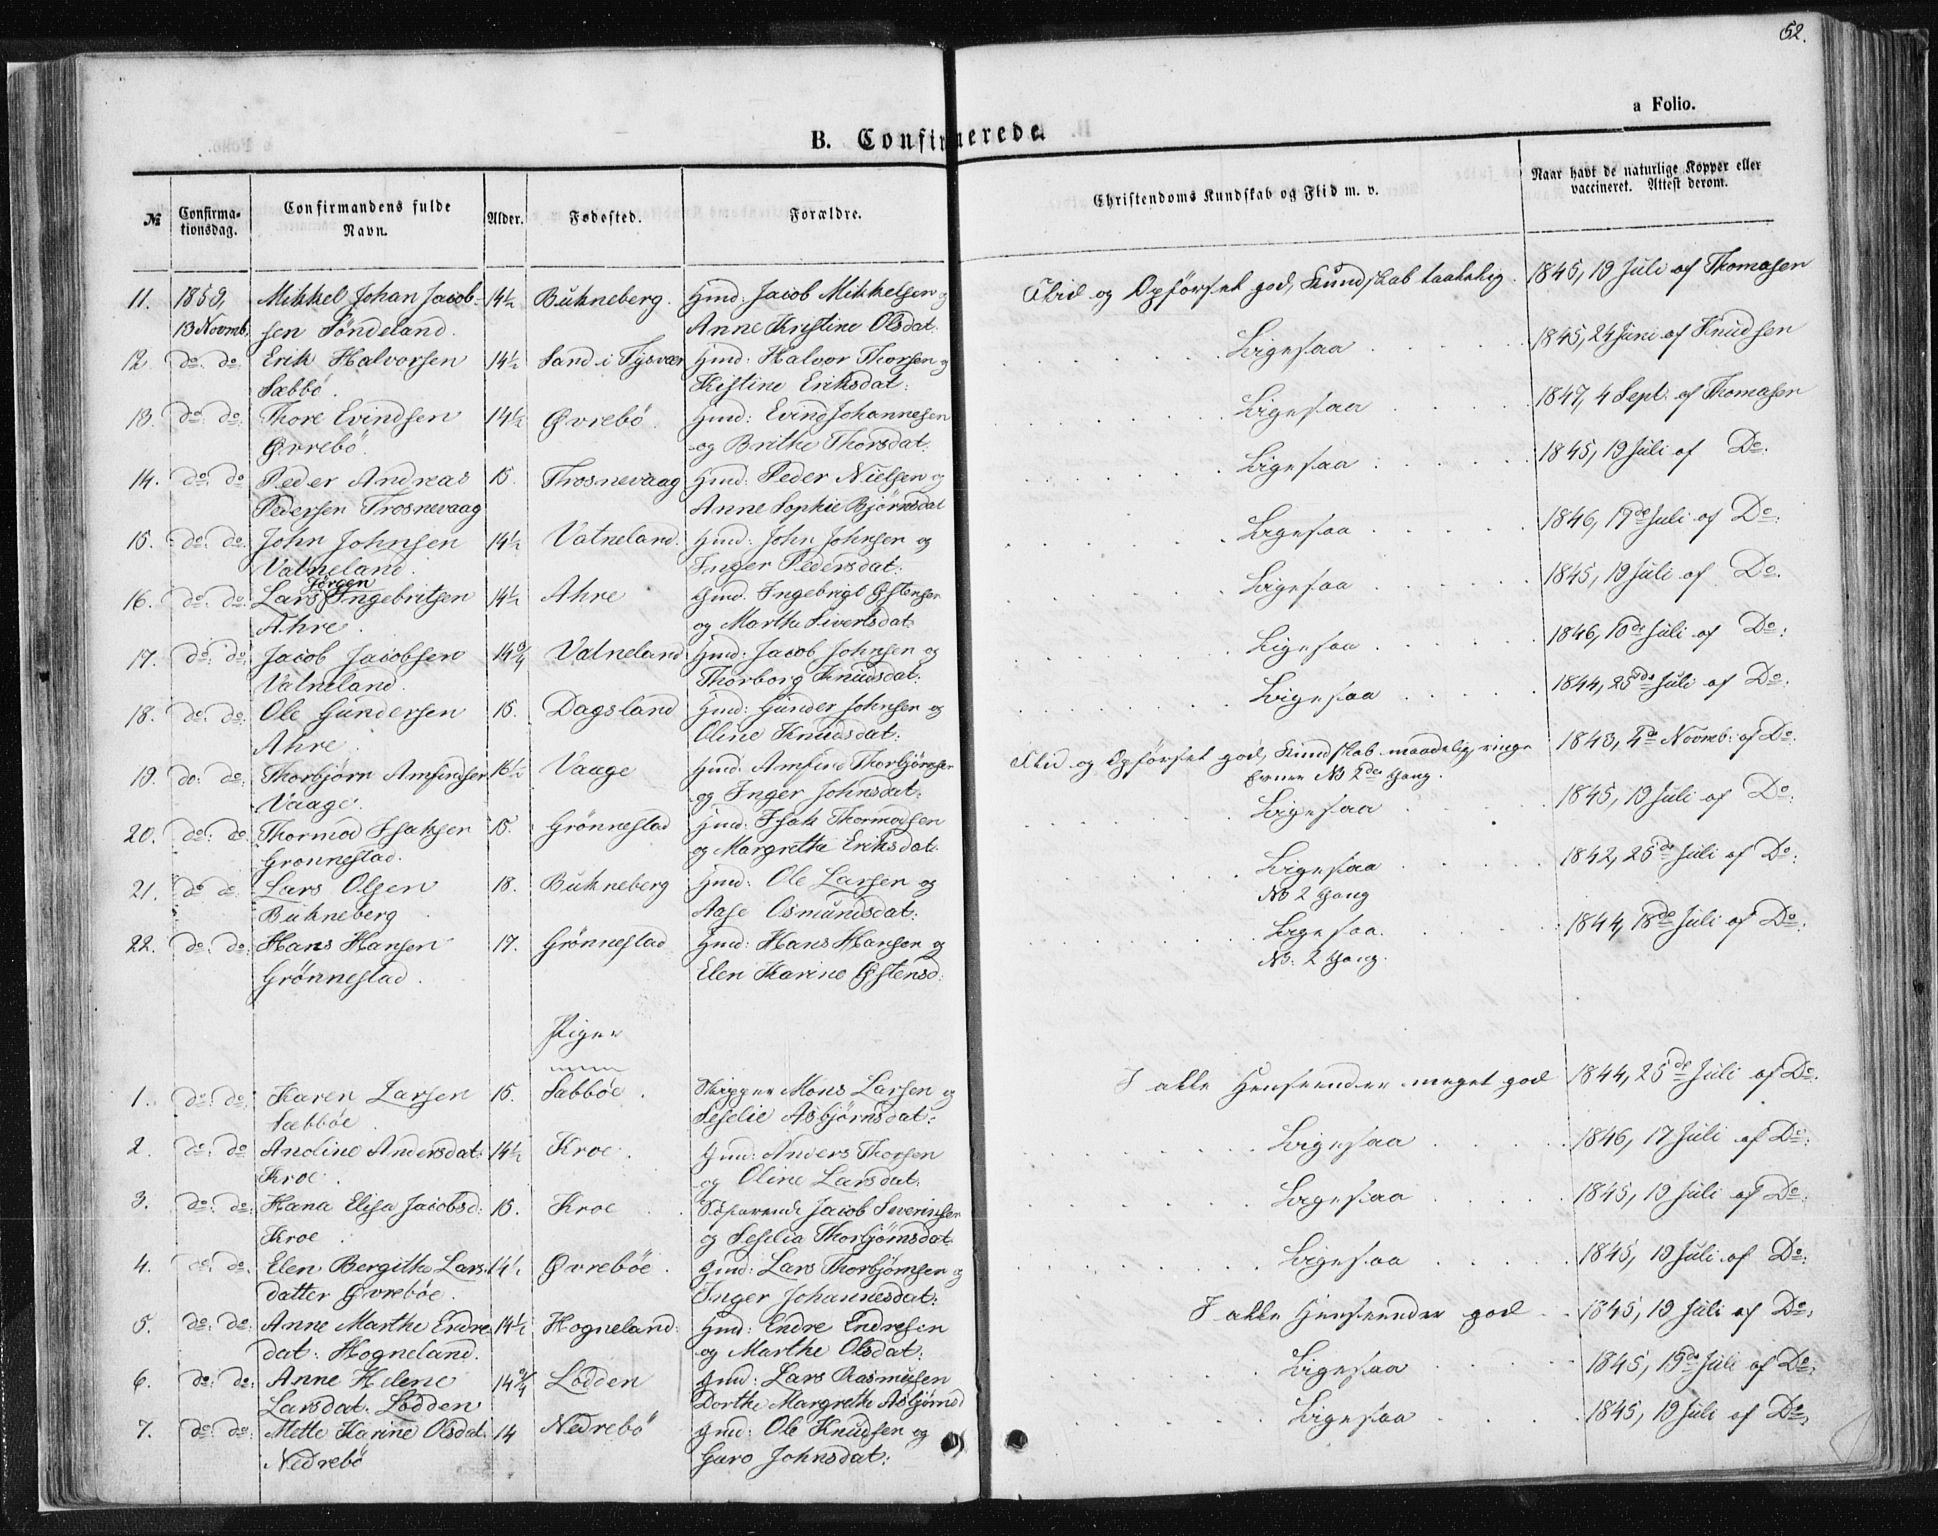 52.
a Folio.
B. Confirmerede.
№ Confirma- Confirmandens fulde Alder. Fødested. Forældre. Christendoms Kundskab og Flid m. v. Naar havt de naturlige Kopper eller
tionsdag. Navn. vaccineret. Attest derom.
11. 1859, Mikkel Johan Jacob- 14½ Bukneberg. Gmd: Jacob Mikkelsen og Flid og Opførsel god, Kundskab taalelig. 1845, 19 Juli af Thomasen
13 Novmb. sen Søndeland. Anne Kristine Olsdat.
12. do. do. Erik Halvorsen 14½ Sand i Tysvær Gmd: Halvor Thorsen og Ligesaa 1845, 24 Juni af Knudsen
Sæbbø. Kistine Eriksdat:
13. do. do. Thore Evindsen 14½ Øvrebö. Gmd: Evind Johannesen Ligesaa 1847, 4 Sept. af Thomasen
Øvrebö. og Brithe Thorsdat:
14. do. do Peder Andreas 15. Trosnevaag Gmd: Peder Nielsen og Ligesaa 1845, 19 Juli af Do.
Pedersen Trosnevaag Anne Sophie Bjørnsdat
15. do. do. John Johnsen 14½ Vatneland. Gmd: John Johnsen og Ligesaa 1846, 17de Juli af Do:
Vatneland. Inger Pedersdat:
Jörgen
16. do. do. Lars Ingebritsen 14½ Ahre Gmd. Ingebrigt Østensen Ligesaa 1845, 19 Juli af Do.
Ahre. og Marthe Sivertsdat:
17. do. do. Jacob Jacobsen 14¾ Vatneland Gmd: Jacob Johnsen og Ligesaa 1846, 10de Juli af Do:
Vatneland. Thorborg Knudsdat:
18. do. do. Ole Gundersen 15. Dagsland Gmd: Gunder Johnsen og Ligesaa 1844, 25de Juli af Do.
Ahre. Oline Knudsdat:
19. do: do. Thorbjørn Amfindsen Vaage Gmd: Amfind Thorbjørnsen Flid og Opførsel god, Kundskab maadelig, ringe 1843, 2de Novmb: af Do.
Vaage. og Inger Johnsdat: Evner NB 2de Gang.
20. do: do. Thormod Isaksen 15. Grönnestad Gmd: Isak Thormodsen Ligesaa 1845, 19 Juli af Do:
Gronnestad. og Margrethe Eriksdat.
21. do do. Lars Olsen 18. Bukneberg Gmd: Ole Larsen og Ligesaa 1842, 25de Juli af Do:
Bukneberg Aase Osmundsdat: NB 2 Gang
22. do. do. Hans Hansen 17. Grönnestad Gmd: Hans Hansen og Ligesaa. 1844, 18de Juli af Do:
Grönnestad. Elen Karine Østensd: NB. 2 Gang.
Piger
1. do. do. Karen Larsen 15. Sæbböe. Skipper Mons Larsen og I alle Henseender meget god 1844, 25de Juli af Do.
Sæbböe Seselie Asbjørnsdat:
2. do. do. Anoline Andersdat: 14½ Kroe. Gmd: Anders Thorsen Ligesaa 1846, 17 Juli af Do:
Kroe. og Oline Larsdat.
3. do. do. Hana Elisa Jacobsd: 15. Kroe. Jacob Severinsen Ligesaa 1845, 19 Juli af Do:
Kroe. og Seselia Thorbjørnsdat.
4. do. do. Elen Bergithe Lars- 14½ Øvreböe. Gmd: Lars Thorbjørnsen og Ligesaa 1845, 19 Juli af Do:
datter Øvreböe. Inger Johannesdat:
5. do: do: Anne Marthe Endre- 14½ Hogneland. Gmd: Endre Endresen I alle Henseender god 1845, 19 Juli af Do:
dat: Hogneland. og Marthe Olsdat:
6. do: do: Anne Helene 14¾ Lodden Gmd: Lars Rasmusen Ligesaa 1845, 19de Juli af Do:
Larsdat. Lodden Dorthe Margrethe Asbjørnsd
7. do: do: Mette Karine Olsdat. 14 Nedrebö Gmd: Ole Knudsen og Ligesaa 1845, 19 Juli af Do.
Nedrebö Guro Johnsdat: